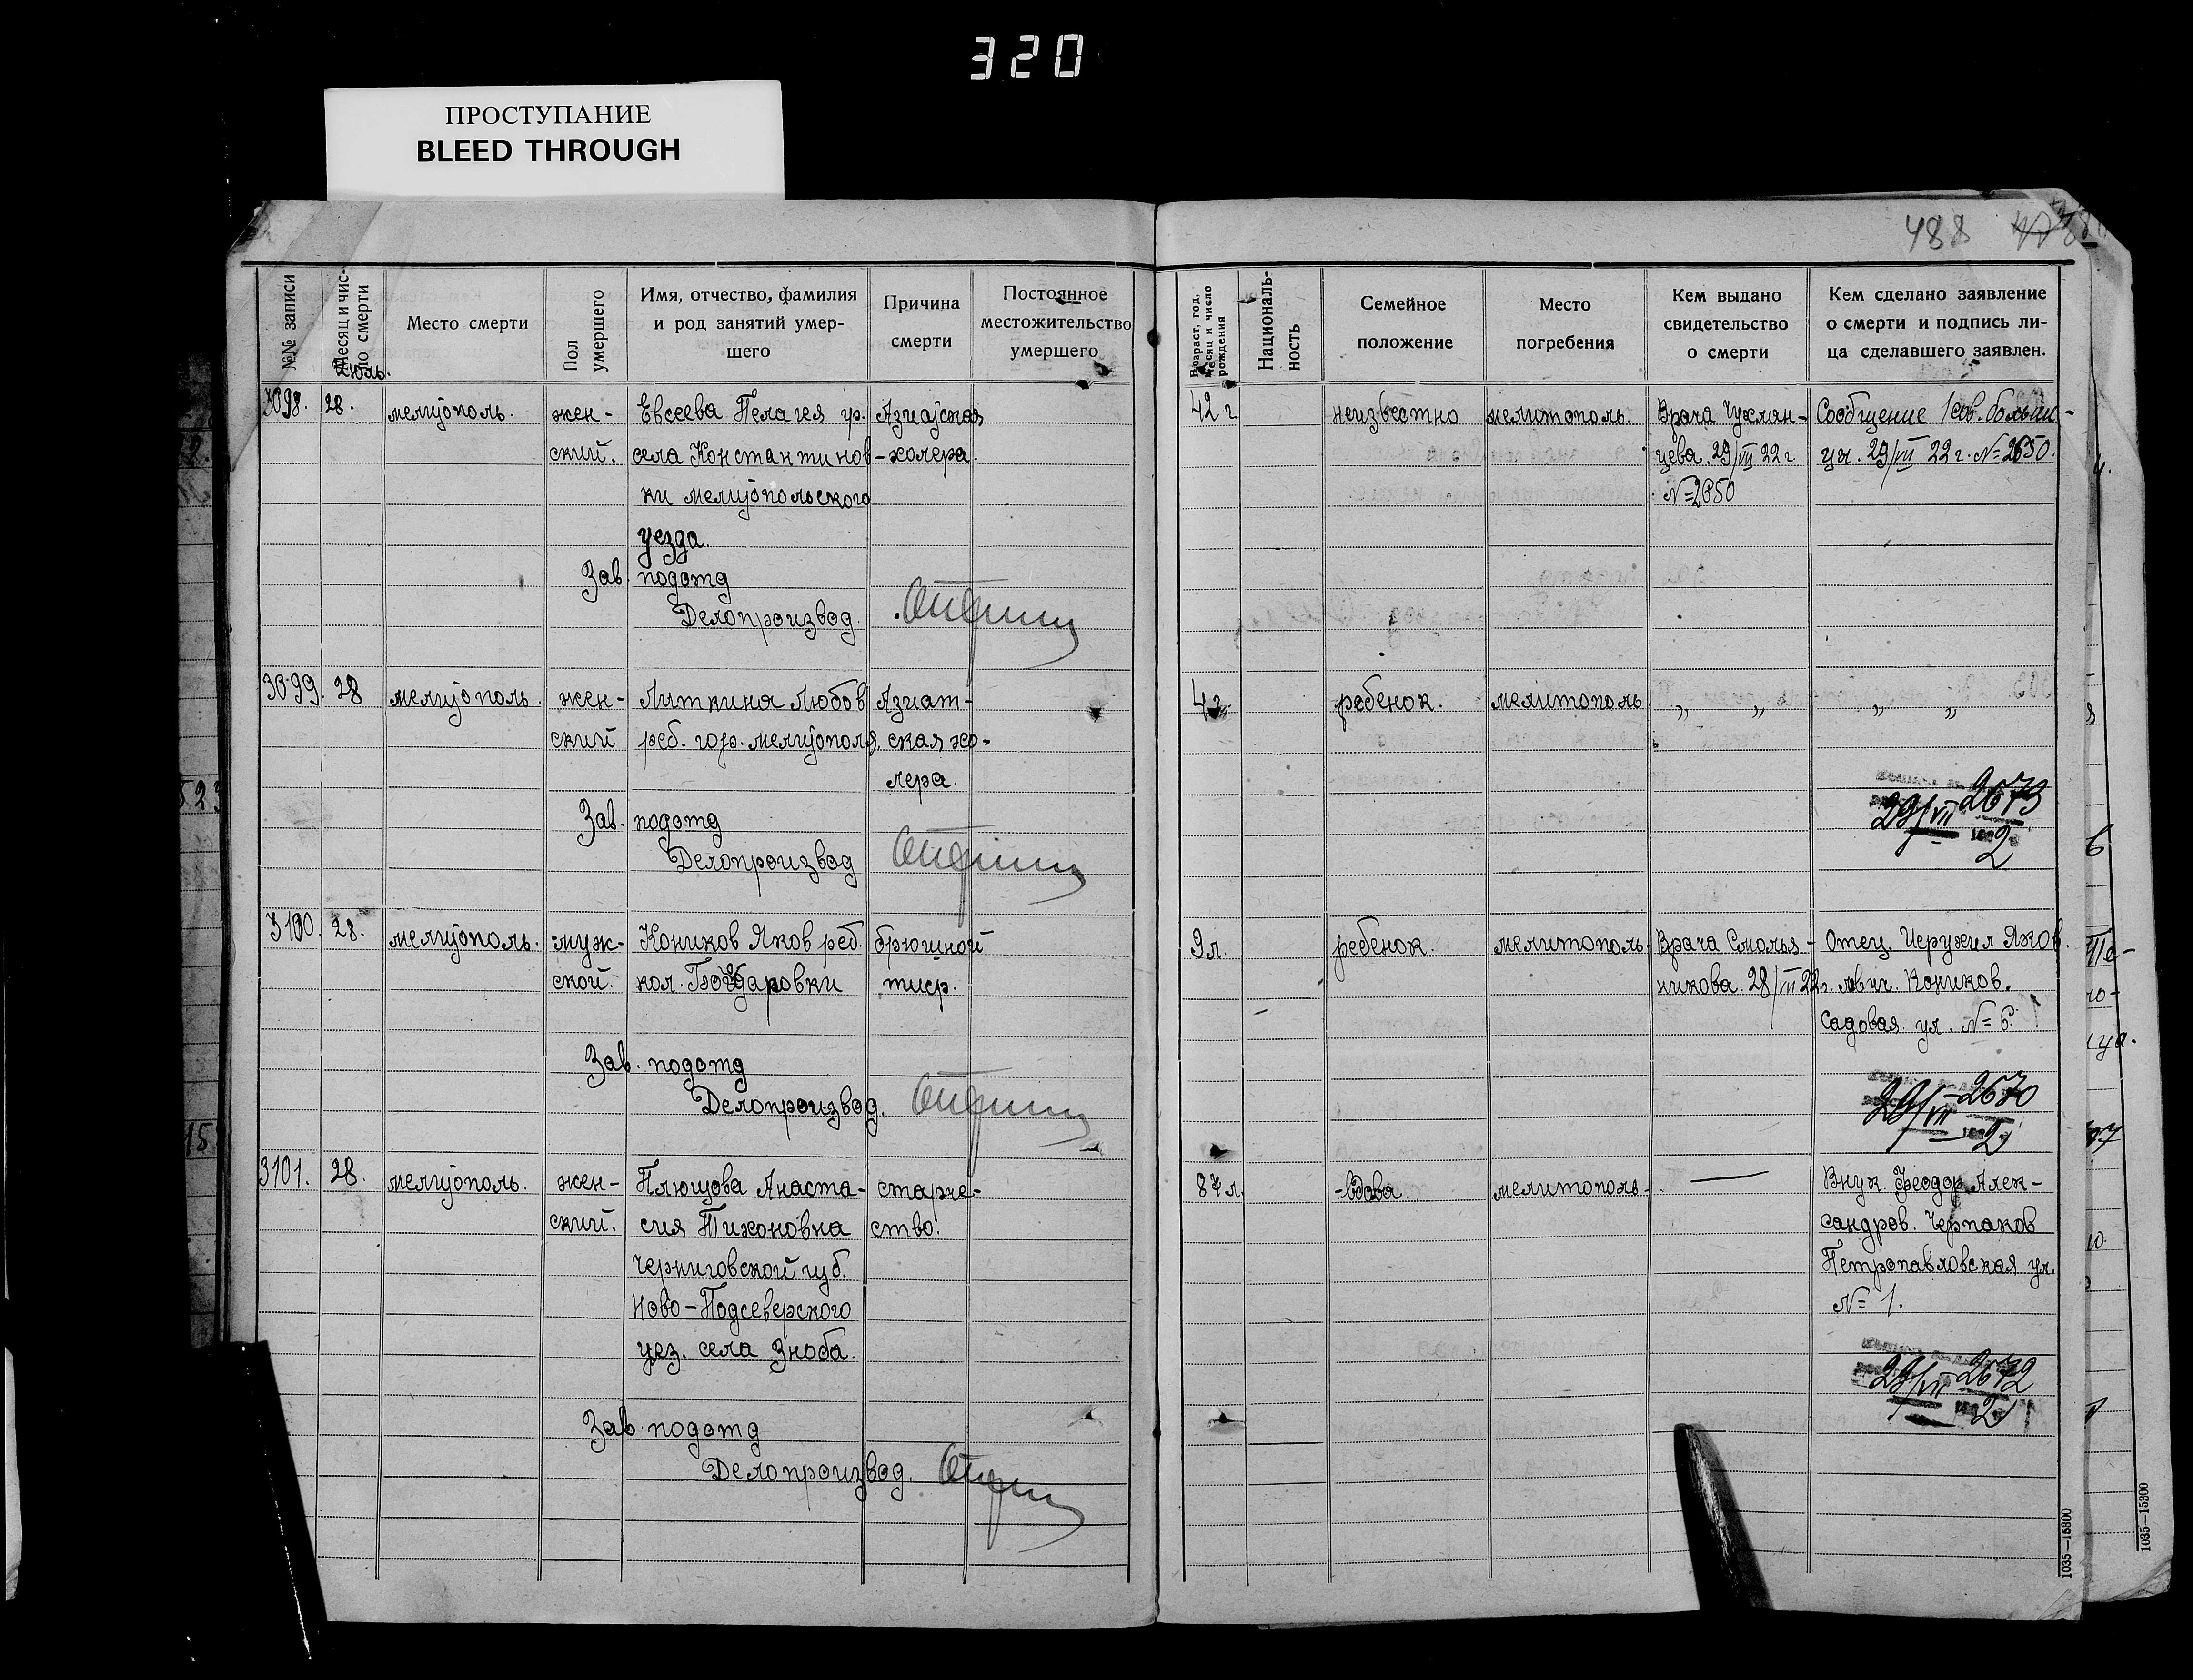 320
ПРОСТУПАНИЕ
BLEED THROUGH
488
№№ записи
Месяц и чис-
ло смерти
Июль.
Место смерти
Пол
умершего
Имя, отчество, фамилия
и род занятий умер-
шего
Причина
смерти
Постоянное
местожительство
умершего
Возраст, год,
месяц и число
рождения
Националь-
ность
Семейное
положение
Место
погребения
Кем выдано
свидетельство
о смерти
Кем сделано заявление
о смерти и подпись ли-
ца сделавшего заявлен.
3098. 28. мелитополь. жен- Евсеева Пелагея гр. Азиатская 42 г неизвестно мелитополь Врача Чухлан- Сообщение 1 сов. больни-
ский. села Константинов- холера. цева. 29/VII 22 г. цы. 29/VII 22 г. № 2650.
ки мелитопольского № 2650
уезда.
Зав. подотд
Делопроизвод.
3099. 28 мелитополь. жен- Литкина Любов Азиат- 4 г. ребенок. мелитополь „ „ „ „
ский реб. гор. мелитополя. ская хо-
лера.
29/VII 2673
2
Зав. подотд
Делопроизвод
3100. 28. мелитополь. муж- Коников Яков реб. брюшной 9 л. ребенок. мелитополь. Врача Смолья- Отец Иерухил Яков
ской. кол. тиф. никова. 28/VII 22 г. левич. Коников.
Садовая ул. № 6.
Зав. подотд
29/VII 2670
2
Делопроизвод.
3101. 28. мелитополь. жен- Плющова Анаста- старче- 87 л. -вдова. мелитополь- — Внук Феодор Алек-
ский. сия Тихоновна ство. сандров. Черпаков
Черниговской губ. Петропавловская ул.
Ново-Подсеверского № 1.
уез. села Зноба.
29/VII 2672
2
Зав. подотд
Делопроизвод.
1035—15300
1035—15300